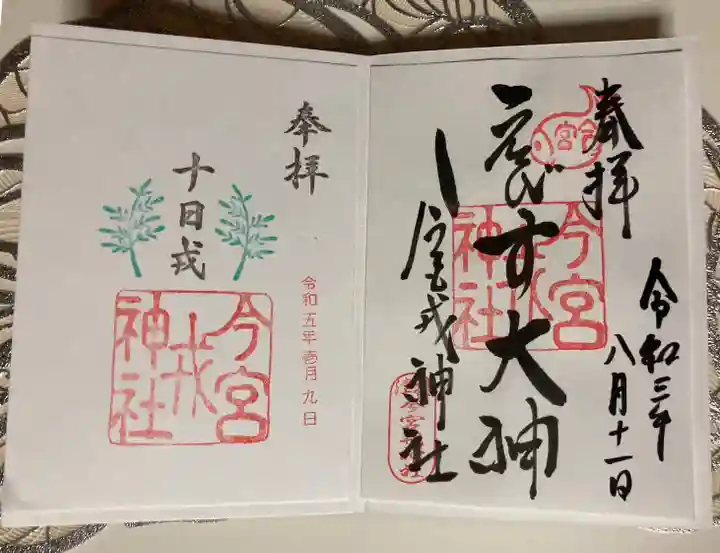 奉拝
令和三年
八月十一日
今宮
えびす大神
今宮戎神社
今宮戎神社
奉拝
十日戎
令和五年壱月九日
今宮戎神社